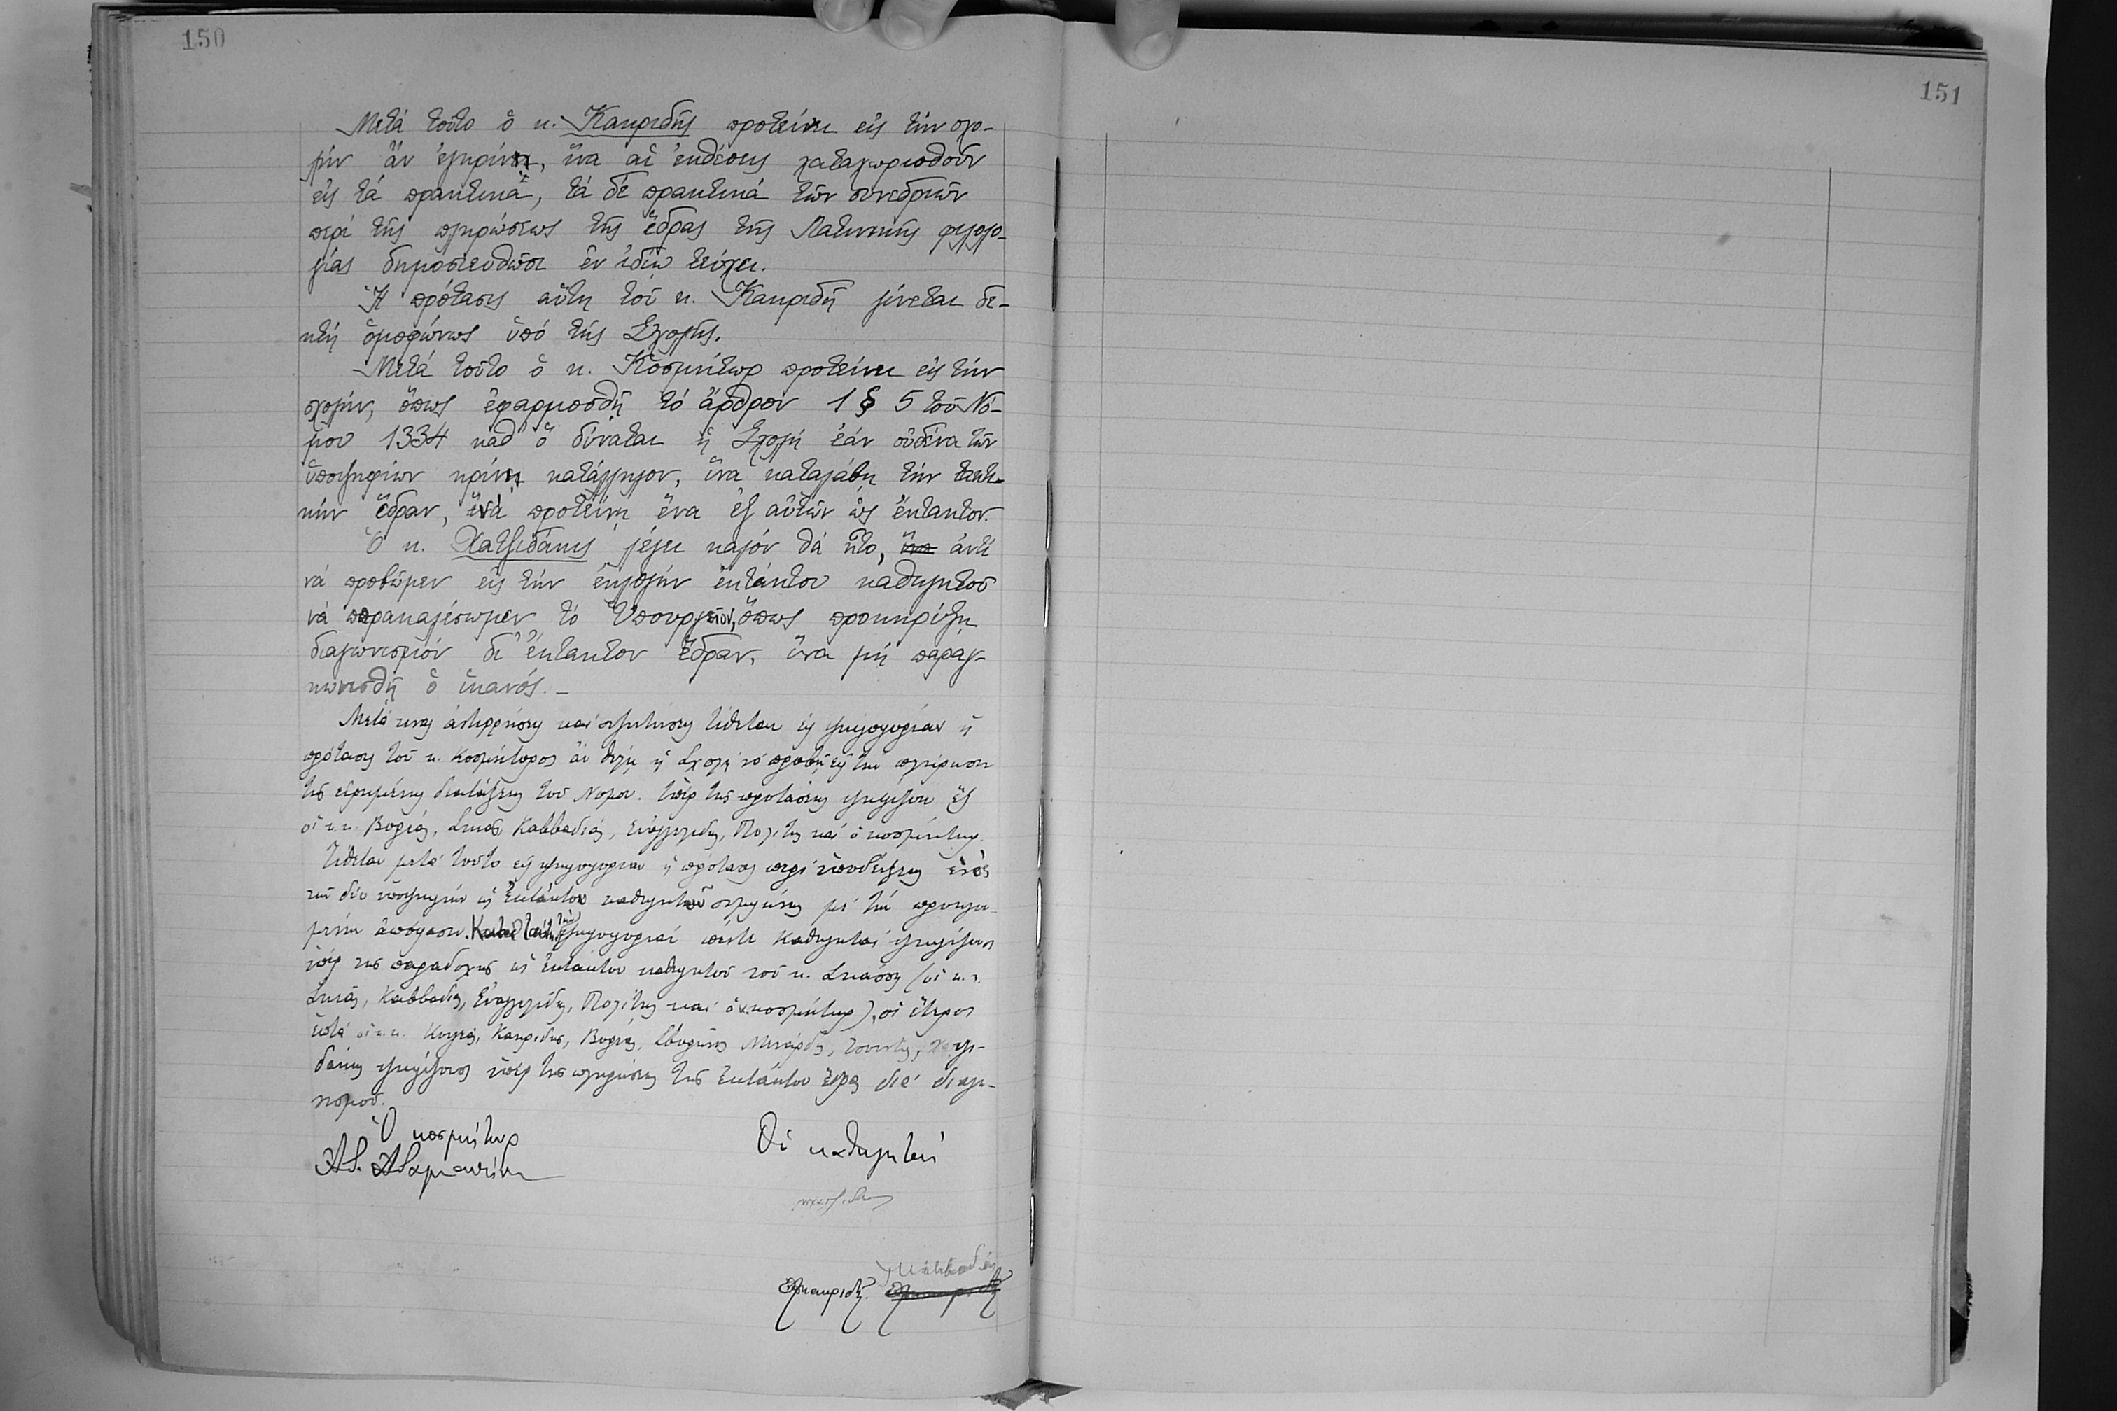 150
151
Μετά τοῦτο ὁ κ. Κακριδῆς προτείνει εἰς τήν σχο-
λήν ἄν ἐγκρίνῃ, ἵνα αἱ ἐκθέσεις καταχωρισθοῦν
εἰς τά πρακτικά, τά δέ πρακτικά τῶν συνεδριῶν
περί τῆς πληρώσεως τῆς ἕδρας τῆς Λατινικῆς φιλολο-
γίας δημοσιευθῶσι ἐν ἰδίῳ τεύχει.
Ἡ πρότασις αὕτη τοῦ κ. Κακριδῆ γίνεται δε-
κτή ὁμοφώνως ὑπό τῆς Σχολῆς.
Μετά τοῦτο ὁ κ. Κοσμήτωρ προτείνει εἰς τήν
σχολήν, ὅπως ἐφαρμοσθῇ τό ἄρθρον 1 § 5 τοῦ Νό-
μου 1334 καθ' ὅ δύναται ἡ Σχολή ἐάν οὐδένα τῶν
ὑποψηφίων κρίνῃ κατάλληλον, ἵνα καταλάβῃ τήν τακτι-
κήν ἕδραν, ἵνα προτείνῃ ἕνα ἐξ αὐτῶν ὡς ἔκτακτον.
Ὁ κ. Χατζιδάκις λέγει καλόν θά ἦτο, ἵνα ἀντί
νά προβῶμεν εἰς τήν ἐκλογήν ἐκτάκτου καθηγητοῦ
νά παρακαλέσωμεν τό Ὑπουργεῖον, ὅπως προκηρύξῃ
διαγωνισμόν δι' ἔκτακτον ἕδραν, ἵνα μή παραγ-
κωνισθῇ ὁ ἱκανός. –
Μετά τινας ἀντιρρήσεις καί συζητήσεις τίθεται εἰς ψηφοφορίαν ἡ
πρότασις τοῦ κ. Κοσμήτορος ἄν θέλῃ ἡ Σχολή νά προβῇ εἰς τήν πλήρωσιν
τῆς εἰρημένης διατάξεως τοῦ Νόμου. Ὑπέρ τῆς προτάσεως ψηφίζουν ἕξ
οἱ κ.κ. Βορέας, Σκιᾶς, Καββαδίας, Εὐαγγελίδης, Πολίτης καί ὁ κοσμήτωρ.
Τίθεται μετά τοῦτο εἰς ψηφοφορίαν ἡ πρότασις περί ὑποδείξεως ἑνός
τῶν δύο ὑποψηφίων ὡς ἐκτάκτου καθηγητοῦ συμφώνως μέ τήν προηγου-
μένην ἀπόφασιν. Κατά ταύτην τήν ψηφοφορίαν πέντε καθηγηταί ψηφίζουν
ὑπέρ τῆς παραδοχῆς ὡς ἐκτάκτου καθηγητοῦ τοῦ κ. Σκάσση (οἱ κ.κ.
Σκιᾶς, Καββαδίας, Εὐαγγελίδης, Πολίτης καί ὁ κοσμήτωρ), οἱ ἕτεροι
ἑπτά οἱ κ.κ. Κουγέας, Κακριδῆς, Βορέας, Σβορῶνος, Μενάρδος, Σωτηριάδης, Χατζι-
δάκις ψηφίζουν ὑπέρ τῆς πληρώσεως τῆς ἐκτάκτου ἕδρας διά διαγω-
νισμοῦ.
Ὁ κοσμήτωρ
Ἀδ. Ἀδαμαντίου
Οἱ καθηγηταί
Καββαδίας
Θ. Κακριδῆς